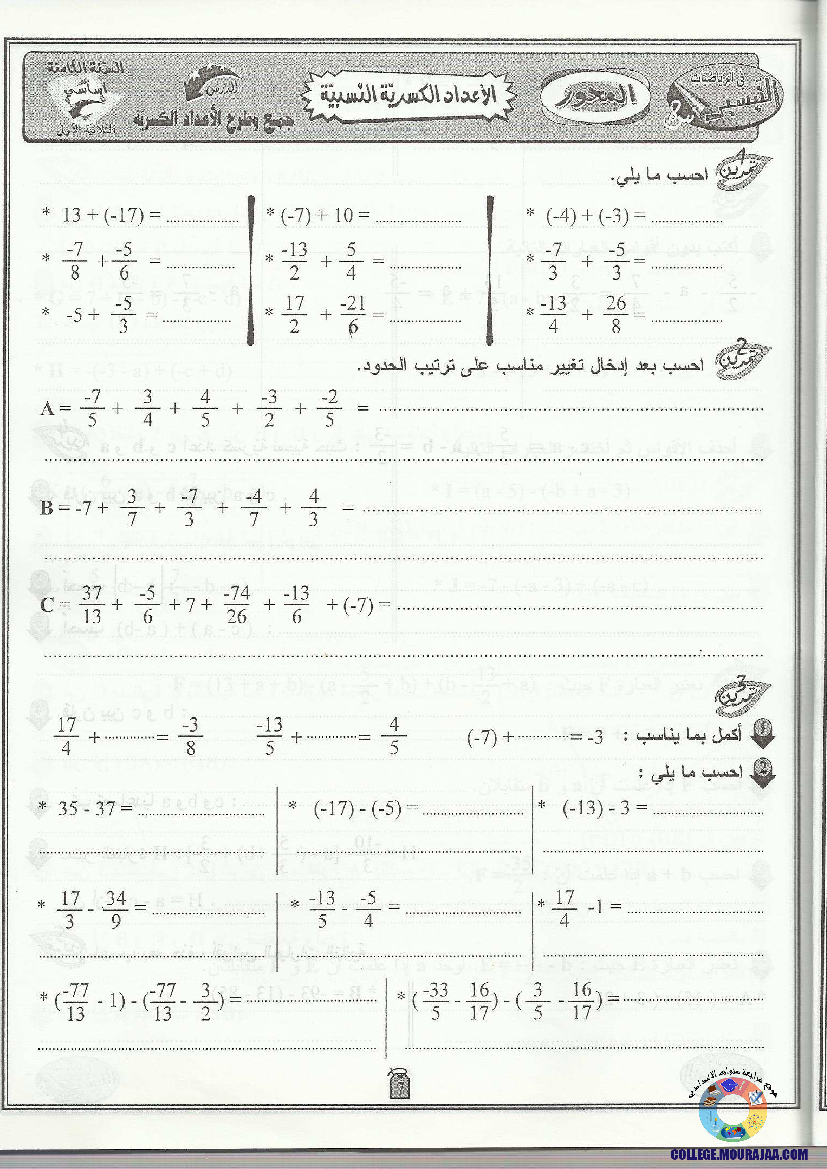 السنة الثامنة
أساسي
الثلاثي الأول
الدرس
جمع وطرح الأعداد الكسرية
الأعداد الكسريّة النسبيّة
المحور
في الرياضيات
تمرين 1 احسب ما يلي.
* 13 + (-17) = .......... * (-7) + 10 = .......... * (-4) + (-3) = ..........
* -7/8 + -5/6 = .......... * -13/2 + 5/4 = .......... * -7/3 + -5/3 = ..........
* -5 + -5/3 = .......... * 17/2 + -21/6 = .......... * -13/4 + 26/8 = ..........
تمرين 2 احسب بعد إدخال تغيير مناسب على ترتيب الحدود.
A = -7/5 + 3/4 + 4/5 + -3/2 + -2/5 = ..........
B = -7 + 3/7 + -7/3 + -4/7 + 4/3 = ..........
C = 37/13 + -5/6 + 7 + -74/26 + -13/6 + (-7) = ..........
تمرين 3
1 أكمل بما يناسب : (-7) + .......... = -3 -13/5 + .......... = 4/5 17/4 + .......... = -3/8
2 احسب ما يلي :
* 35 - 37 = .......... * (-17) - (-5) = .......... * (-13) - 3 = ..........
* 17/3 - 34/9 = .......... * -13/5 - -5/4 = .......... * 17/4 - 1 = ..........
* (-77/13 - 1) - (-77/13 - 3/2) = .......... * (-33/5 - 16/17) - (3/5 - 16/17) = ..........
7
موقع مراجعة
COLLEGE.MOURAJAA.COM